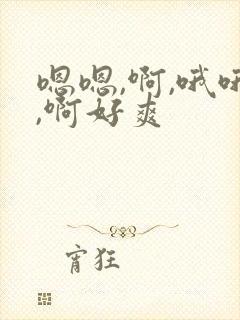 嗯嗯,啊,哦哦
,啊好爽
宵狂